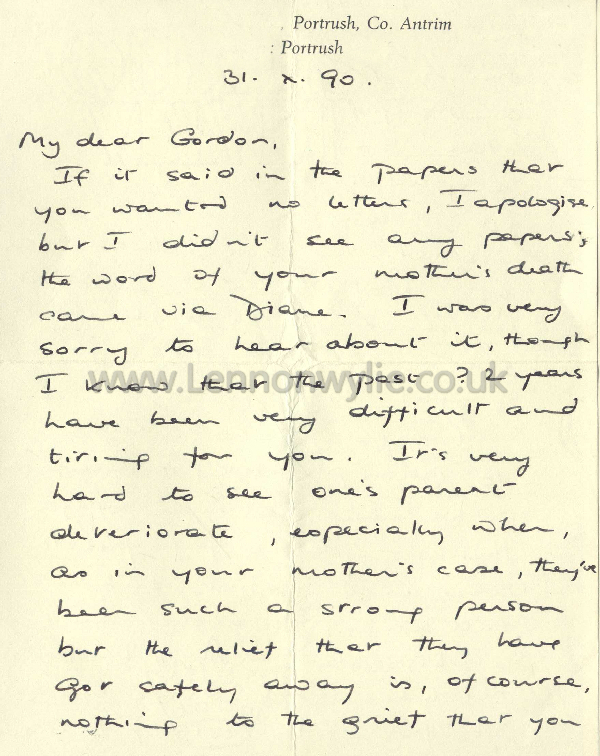 Portrush, Co. Antrim
: Portrush
31. x. 90.
My dear Gordon,
If it said in the papers that
you wanted no letters, I apologise
but I didn't see any papers;
the word of your mother's death
came via Diane. I was very
sorry to hear about it, though
I know that the past ? 2 years
www.Lennonwylie.co.uk
have been very difficult and
tiring for you. It's very
hard to see one's parent
deteriorate, especially when,
as in your mother's case, they've
been such a strong person
but the relief that they have
got safely away is, of course,
nothing to the grief that you